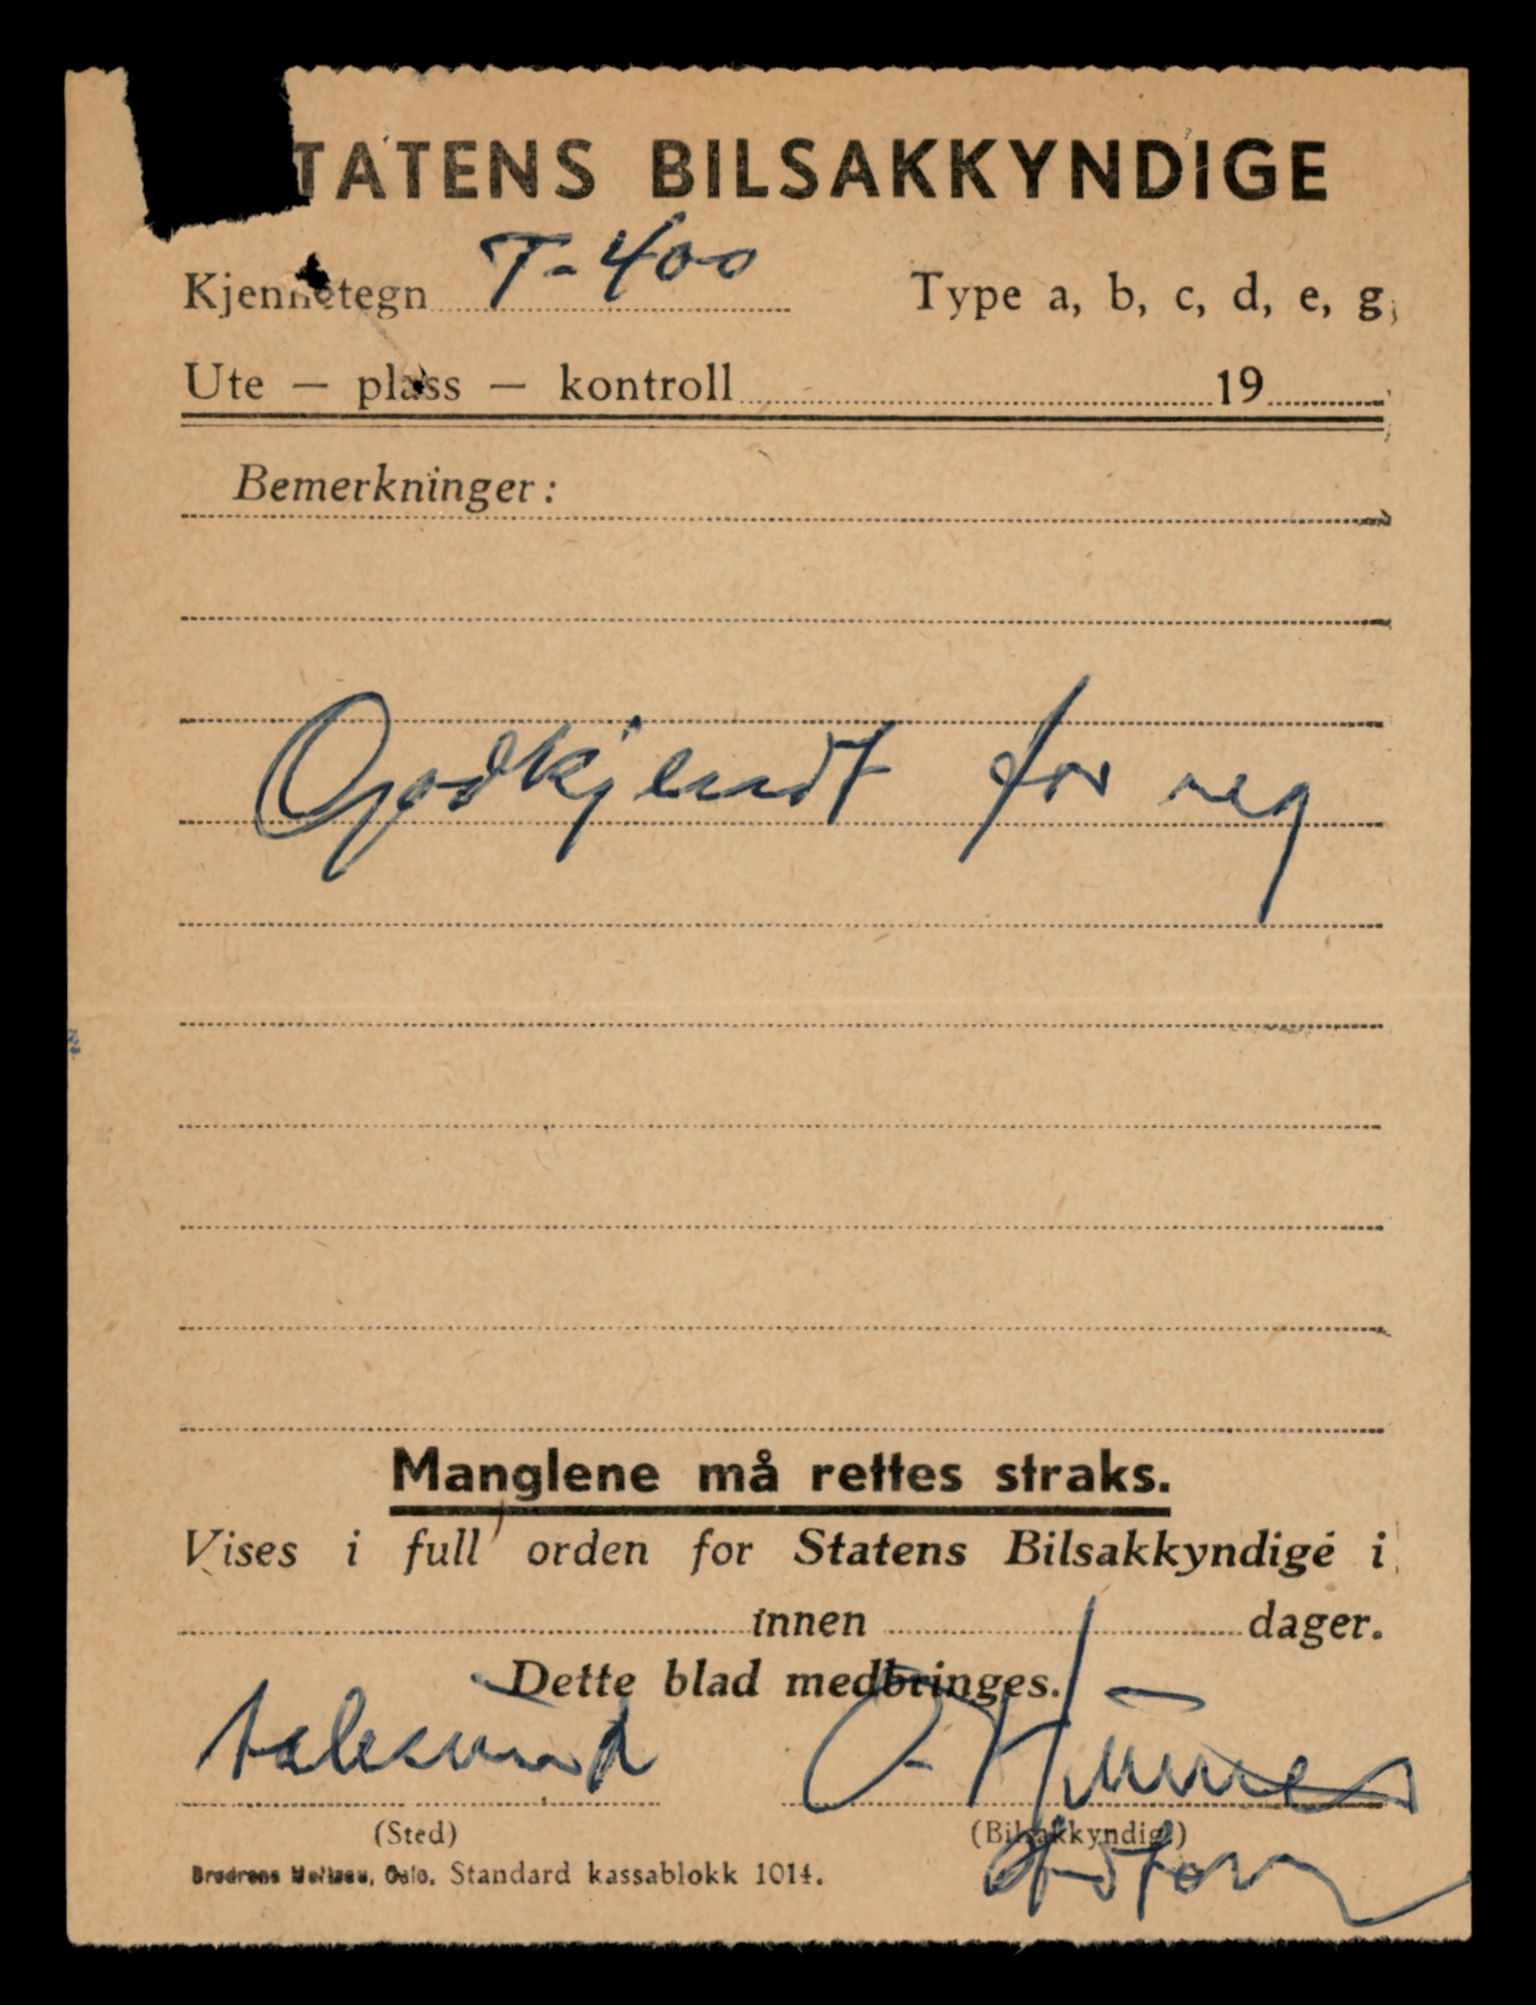 TATENS BILSAKKYNDIGE
Kjennetegn T-400 Type a, b, c, d, e, g,
Ute — plass — kontroll 19
Bemerkninger:
Godkjendt for reg
Manglene må rettes straks.
Vises i full orden for Statens Bilsakkyndige i
innen dager.
Dette blad medbringes.
Aalesund
(Sted) (Bilsakkyndige)
Brødrene Meltzer, Oslo. Standard kassablokk 1014.